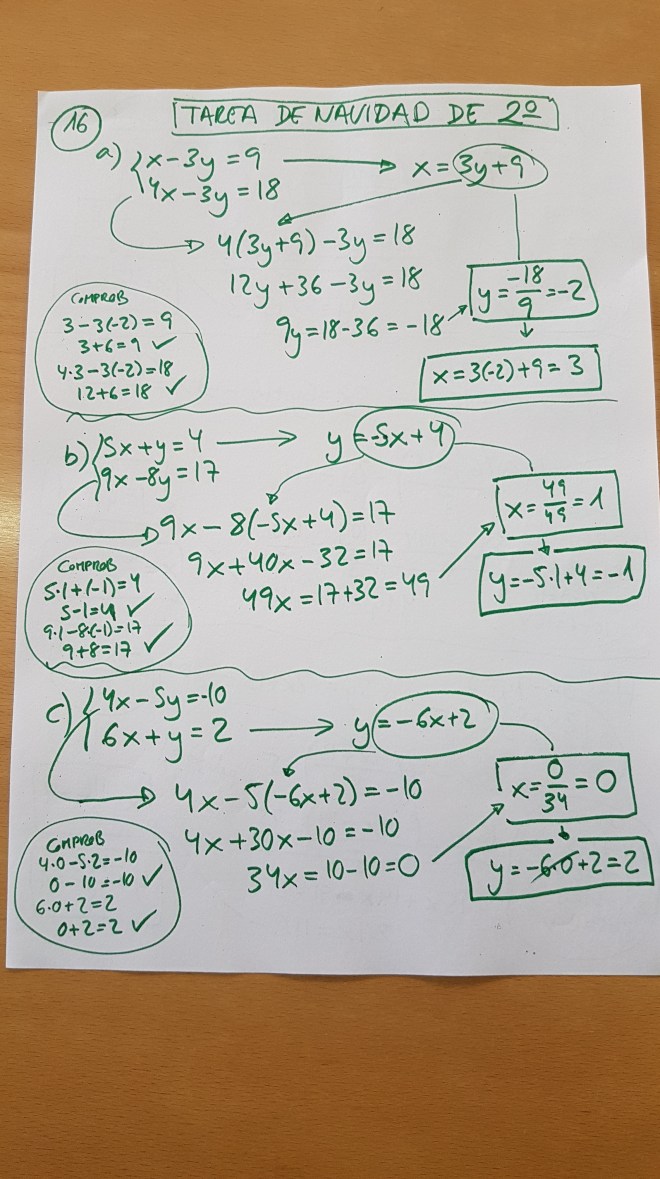 16
TAREA DE NAVIDAD DE 2º
a) { x-3y=9 → x=3y+9
4x-3y=18
4(3y+9)-3y=18
12y+36-3y=18
9y=18-36=-18
y=-18/9=-2
x=3(-2)+9=3
COMPROB
3-3(-2)=9
3+6=9 ✓
4·3-3(-2)=18
12+6=18 ✓
b) { 5x+y=4 → y=-5x+4
9x-8y=17
9x-8(-5x+4)=17
9x+40x-32=17
49x=17+32=49
x=49/49=1
y=-5·1+4=-1
COMPROB
5·1+(-1)=4
5-1=4 ✓
9·1-8·(-1)=17
9+8=17 ✓
c) { 4x-5y=-10
6x+y=2 → y=-6x+2
4x-5(-6x+2)=-10
4x+30x-10=-10
34x=10-10=0
x=0/34=0
y=-6·0+2=2
COMPROB
4·0-5·2=-10
0-10=-10 ✓
6·0+2=2
0+2=2 ✓